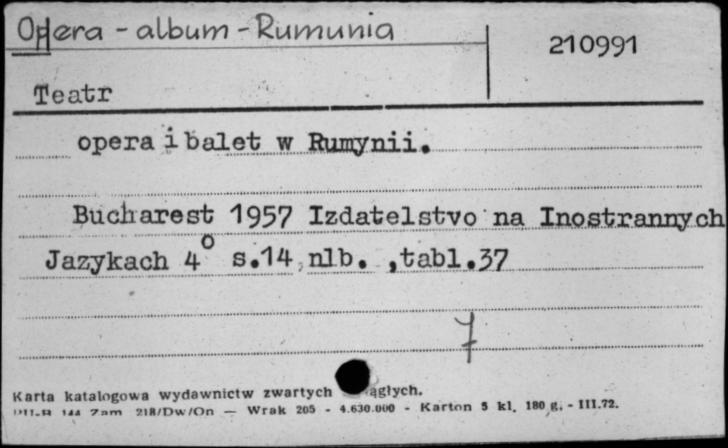 Opera - album - Rumunia
210991
Teatr
opera i balet w Rumynii.
Bucharest 1957 Izdatelstvo na Inostrannych
Jazykach 4° s.14, nlb. ,tabl.37
7
Karta katalogowa wydawnictw zwartych ągłych.
Zam. 218/Dw/On — Wrak 205 - 4.630.000 - Karton 5 kl. 180 g. - III.72.